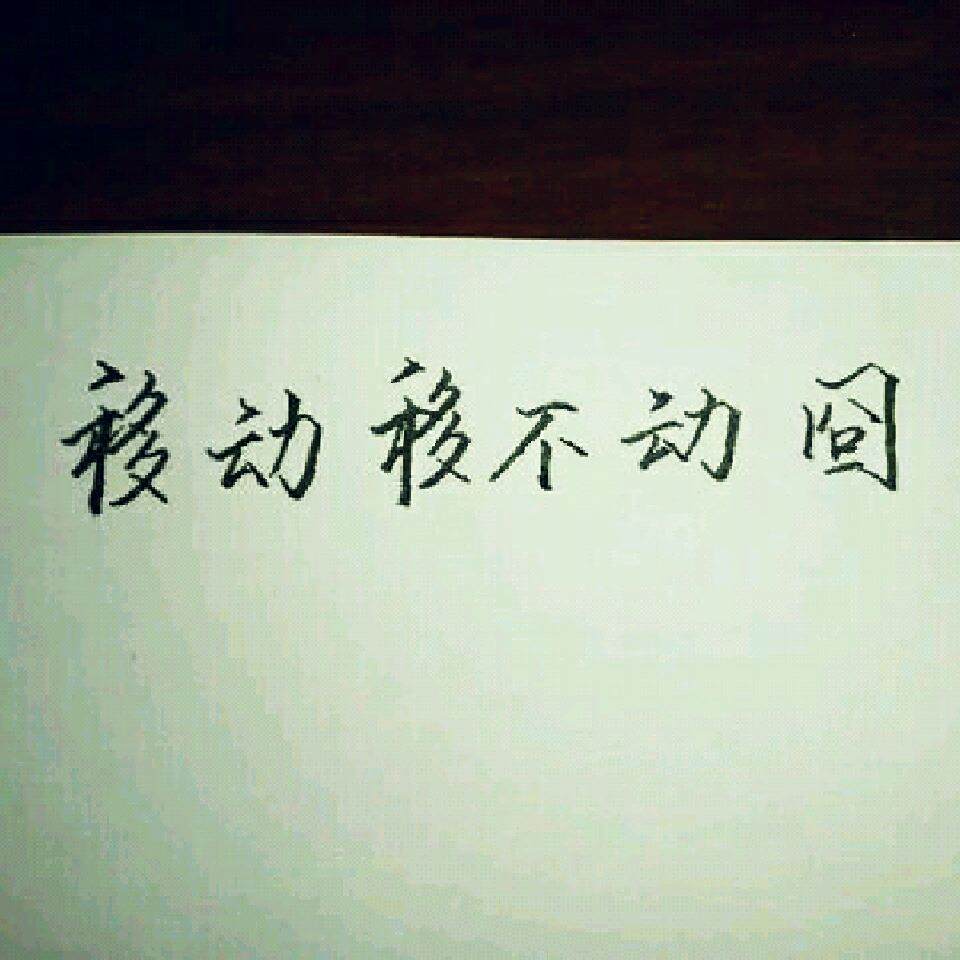 移动移不动囧